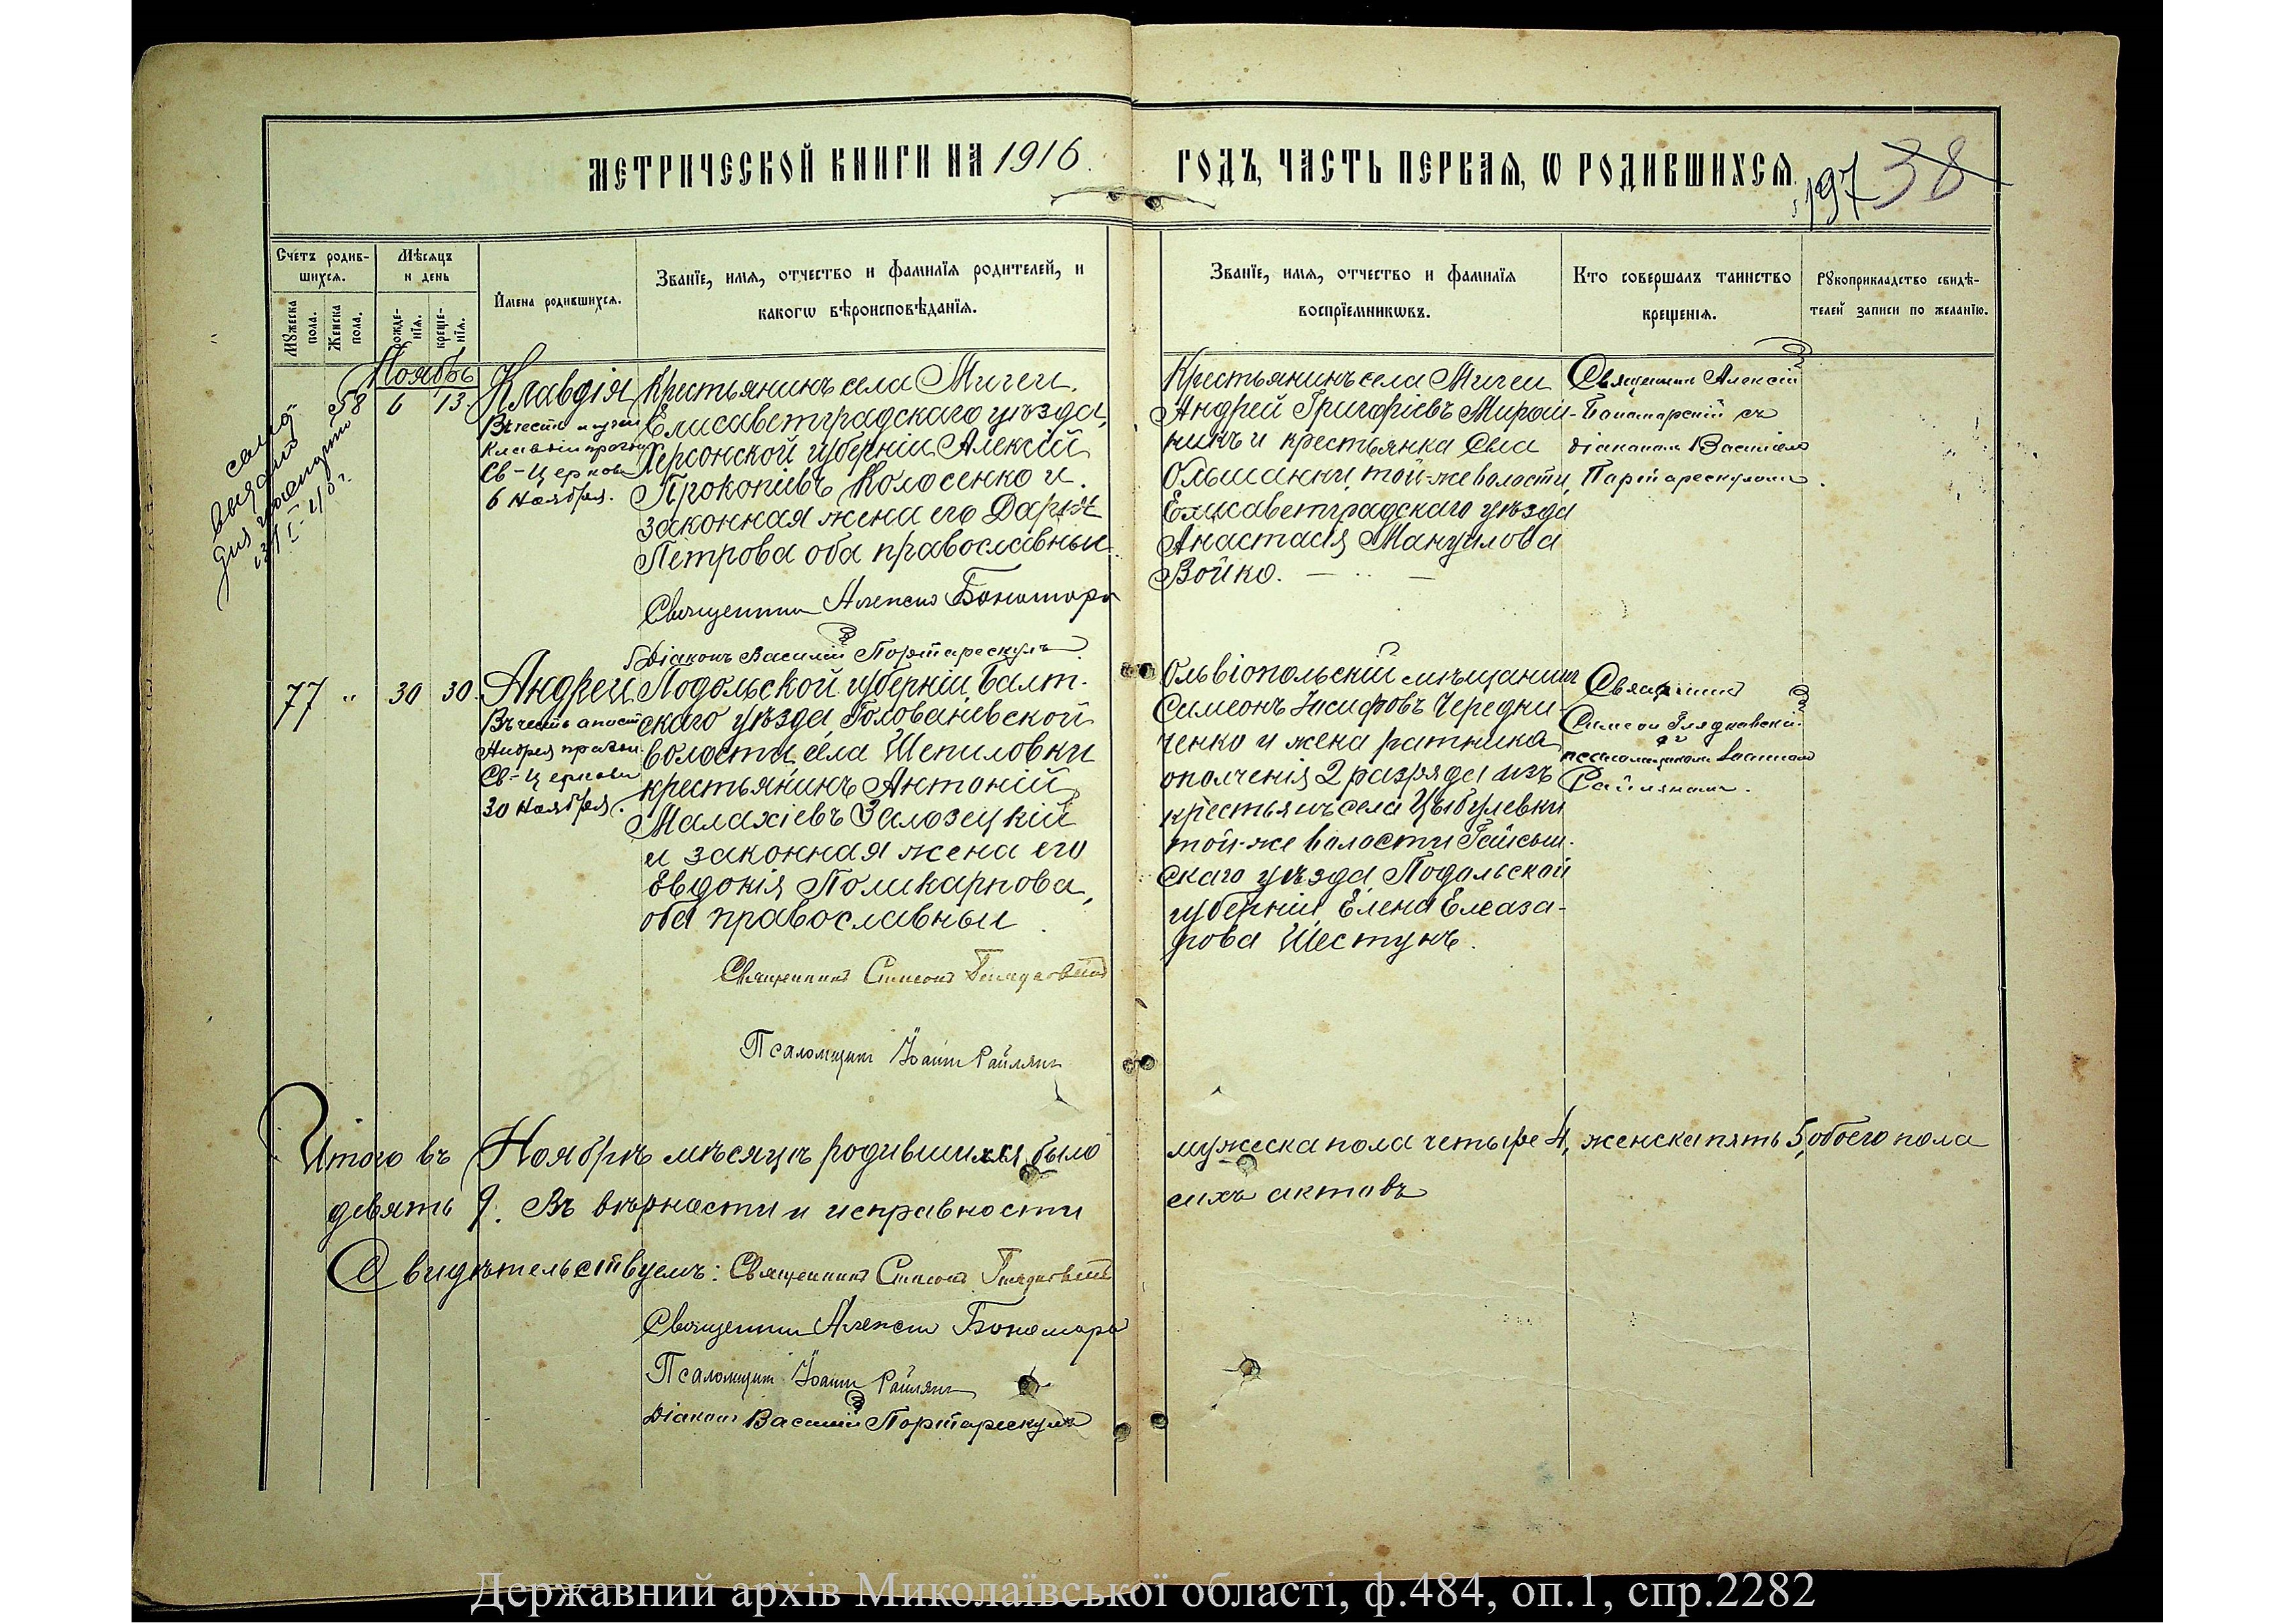 МЕТРИЧЕСКОЙ КНИГИ НА 1916 ГОДЪ, ЧАСТЬ ПЕРВАЯ, Ѡ РОДИВШИХСЯ.
197 38
Счетъ родив-
шихся.
Мѣсяцъ
и день
Мужеска
пола.
Женска
пола.
рожде-
нія.
креще-
нія.
Имена родившихся.
Званіе, имя, отчество и фамилія родителей, и
какогѡ вѣроисповѣданія.
Званіе, имя, отчество и фамилія
воспріемникѡвъ.
Кто совершалъ таинство
крещенія.
Рукоприкладство свидѣ-
телей записи по желанію.
Ноябрь
58 6 13
Клавдія
Въ честь мучен
Клавдіи празд
Св-Церковь
6 Ноября.
Крестьянинъ села Мигеи
Елисаветградскаго уѣзда,
Херсонской губерніи Алексій
Прокопіевъ Колосенко и
законная жена его Дарія
Петрова оба православные
Священникъ Алексій Бономарс
Діаконъ Василій Портарескулъ
Крестьянинъ села Мигеи
Андрей Григоріевъ Мирош-
никъ и крестьянка села
Ольшанки, той-же волости,
Елисаветградскаго уѣзда
Анастасія Мануилова
Бойко.
Священникъ Алексій
съ
діакономъ Василіемъ
Портарескуломъ.
выдано
77 " 30 30
Андрей
Въ честь апост
Андрея праздн
Св-Церковь
30 Ноября.
Подольской губерніи, Балт-
скаго уѣзда, Голованевской
волости, села Шепиловки
крестьянинъ Антоній
Малахіевъ Залозецкій
и законная жена его
Евдокія Поликарпова,
оба православные
Священникъ Симеонъ
Псаломщикъ Іоаннъ Райлянъ
Ольвіопольскій мѣщанинъ
Симеонъ Іосифовъ Чередни-
ченко и жена ратника
ополченія 2 разряда изъ
крестьянъ села Цыбулевки
той-же волости Гайсин-
скаго уѣзда, Подольской
губерніи, Елена Елеаза-
рова Шестунъ.
Священникъ
Симеонъ
съ
псаломщикомъ Іоанномъ
Райляномъ.
Итого въ Ноябрѣ мѣсяцѣ родившихся было мужеска пола четыре 4, женска пять 5, обоего пола
девять 9. Въ вѣрности и исправности сихъ актовъ
Свидѣтельствуемъ: Священникъ Симеонъ
Священникъ Алексій
Псаломщикъ Іоаннъ Райлянъ
Діаконъ Василій Портарескулъ
Державний архів Миколаївської області, ф.484, оп.1, спр.2282